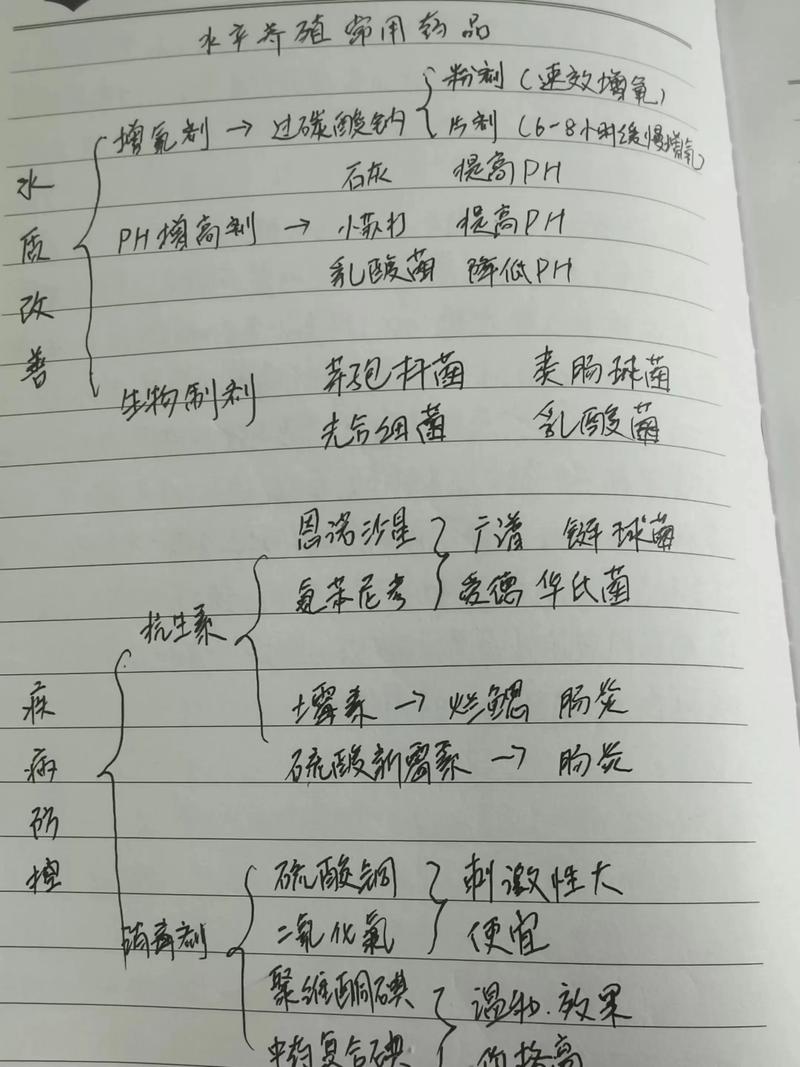 水产养殖常用药品
粉剂（速效增氧）
增氧剂 → 过碳酸钠
片剂（6-8小时缓慢增氧）
石灰 提高PH
PH增高剂 → 小苏打 提高PH
乳酸菌 降低PH
水质改善
生物制剂
芽孢杆菌 粪肠球菌
光合细菌 乳酸菌
恩诺沙星 广谱 链球菌
氟苯尼考 爱德华氏菌
抗生素
土霉素 → 烂鳃 肠炎
硫酸新霉素 → 肠炎
疾病防控
硫酸铜 刺激性大
二氧化氯 便宜
消毒剂
聚维酮碘 温和.效果
中药复合碘 价格高